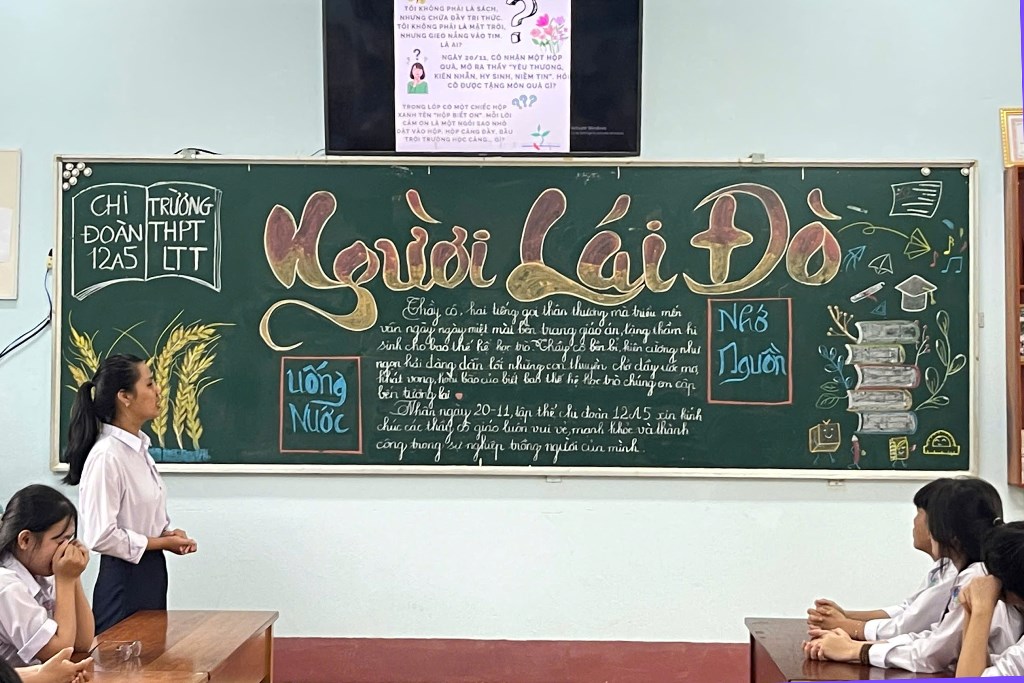 TÔI KHÔNG PHẢI LÀ SÁCH,
NHƯNG CHỨA ĐẦY TRI THỨC.
TÔI KHÔNG PHẢI LÀ MẶT TRỜI,
NHƯNG GIEO NẮNG VÀO TIM.
LÀ AI?
NGÀY 20/11, CÔ NHẬN MỘT HỘP
QUÀ, MỞ RA THẤY "YÊU THƯƠNG,
KIÊN NHẪN, HY SINH, NIỀM TIN". HỎI
CÔ ĐƯỢC TẶNG MÓN QUÀ GÌ?
TRONG LỚP CÓ MỘT CHIẾC HỘP
XANH TÊN "HỘP BIẾT ƠN". MỖI LỜI
CẢM ƠN LÀ MỘT NGÔI SAO NHỎ
ĐẶT VÀO HỘP. HỘP CÀNG ĐẦY, BẦU
TRỜI TRƯỜNG HỌC CÀNG... GÌ?
CHI
ĐOÀN
12A5
TRƯỜNG
THPT
LTT
Người Lái Đò
Thầy cô, hai tiếng gọi thân thương mà trìu mến
vẫn ngày ngày miệt mài bên trang giáo án, tăng thầm hi
sinh cho bao thế hệ học trò. Thầy cô bền bỉ, kiên cường như
ngọn hải đăng dẫn lối những con thuyền chở đầy ước mơ,
khát vọng, hoài bão của biết bao thế hệ học trò chúng em cập
bến tương lai
Nhân ngày 20-11, tập thể chi đoàn 12A5 xin kính
chúc các thầy, cô giáo luôn vui vẻ, mạnh khỏe và thành
công trong sự nghiệp trồng người của mình.
Uống
Nước
Nhớ
Nguồn